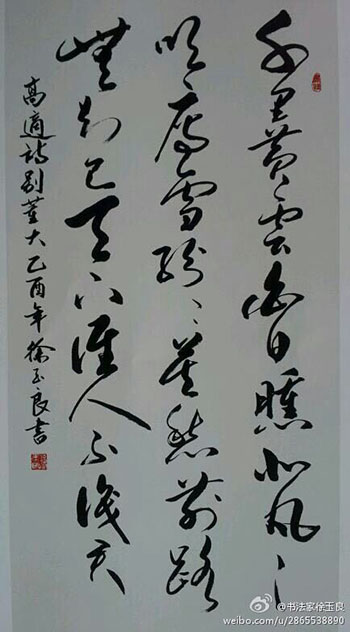 千里黃雲白日曛北風
吹雁雪紛〻莫愁前路
無知己天下誰人不識君
高適詩別董大乙酉年徐玉良書
@书法家徐玉良
weibo.com/u/2865538890